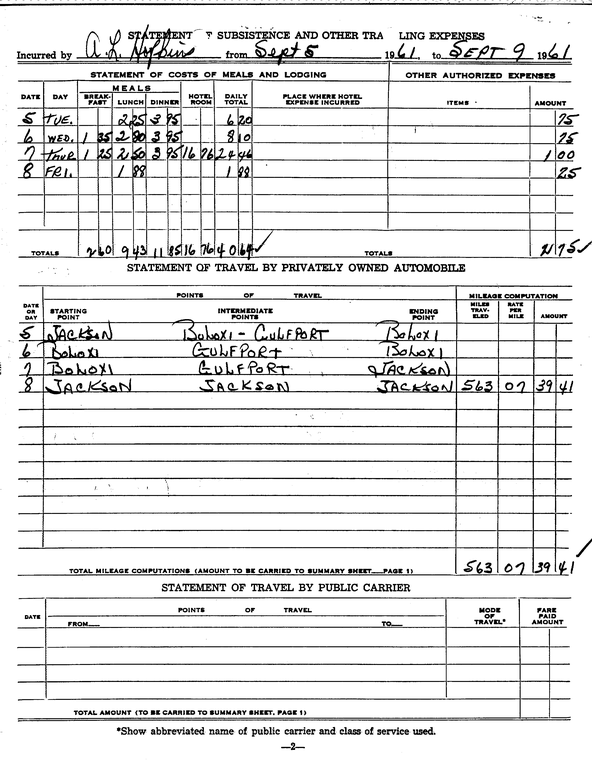 STATEMENT F SUBSISTENCE AND OTHER TRA LING EXPENSES
Incurred by A. L. Hopkins from Sept 5 1961, to SEPT 9 1961
STATEMENT OF COSTS OF MEALS AND LODGING OTHER AUTHORIZED EXPENSES
MEALS
DATE DAY BREAK-FAST LUNCH DINNER HOTEL ROOM DAILY TOTAL PLACE WHERE HOTEL EXPENSE INCURRED ITEMS AMOUNT
5 TUE. 2 25 3 95 6 20 75
6 WED. 1 35 2 80 3 95 8 10 75
7 THUR 1 25 2 50 3 95 16 76 24 46 1 00
8 FRI. 1 88 1 88 25
TOTALS 2 60 9 43 11 85 16 76 40 64 ✓ TOTALS 2 75 ✓
STATEMENT OF TRAVEL BY PRIVATELY OWNED AUTOMOBILE
POINTS OF TRAVEL MILEAGE COMPUTATION
DATE OR DAY STARTING POINT INTERMEDIATE POINTS ENDING POINT MILES TRAV-ELED RATE PER MILE AMOUNT
5 JACKSON BOLOXI - GULFPORT BOLOXI
6 BOLOXI GULFPORT BOLOXI
7 BOLOXI GULFPORT JACKSON
8 JACKSON JACKSON JACKSON 563 07 39 41
TOTAL MILEAGE COMPUTATIONS (AMOUNT TO BE CARRIED TO SUMMARY SHEET PAGE 1) 563 07 39 41 ✓
STATEMENT OF TRAVEL BY PUBLIC CARRIER
POINTS OF TRAVEL
DATE FROM TO MODE OF TRAVEL* FARE PAID AMOUNT
TOTAL AMOUNT (TO BE CARRIED TO SUMMARY SHEET, PAGE 1)
*Show abbreviated name of public carrier and class of service used.
—2—